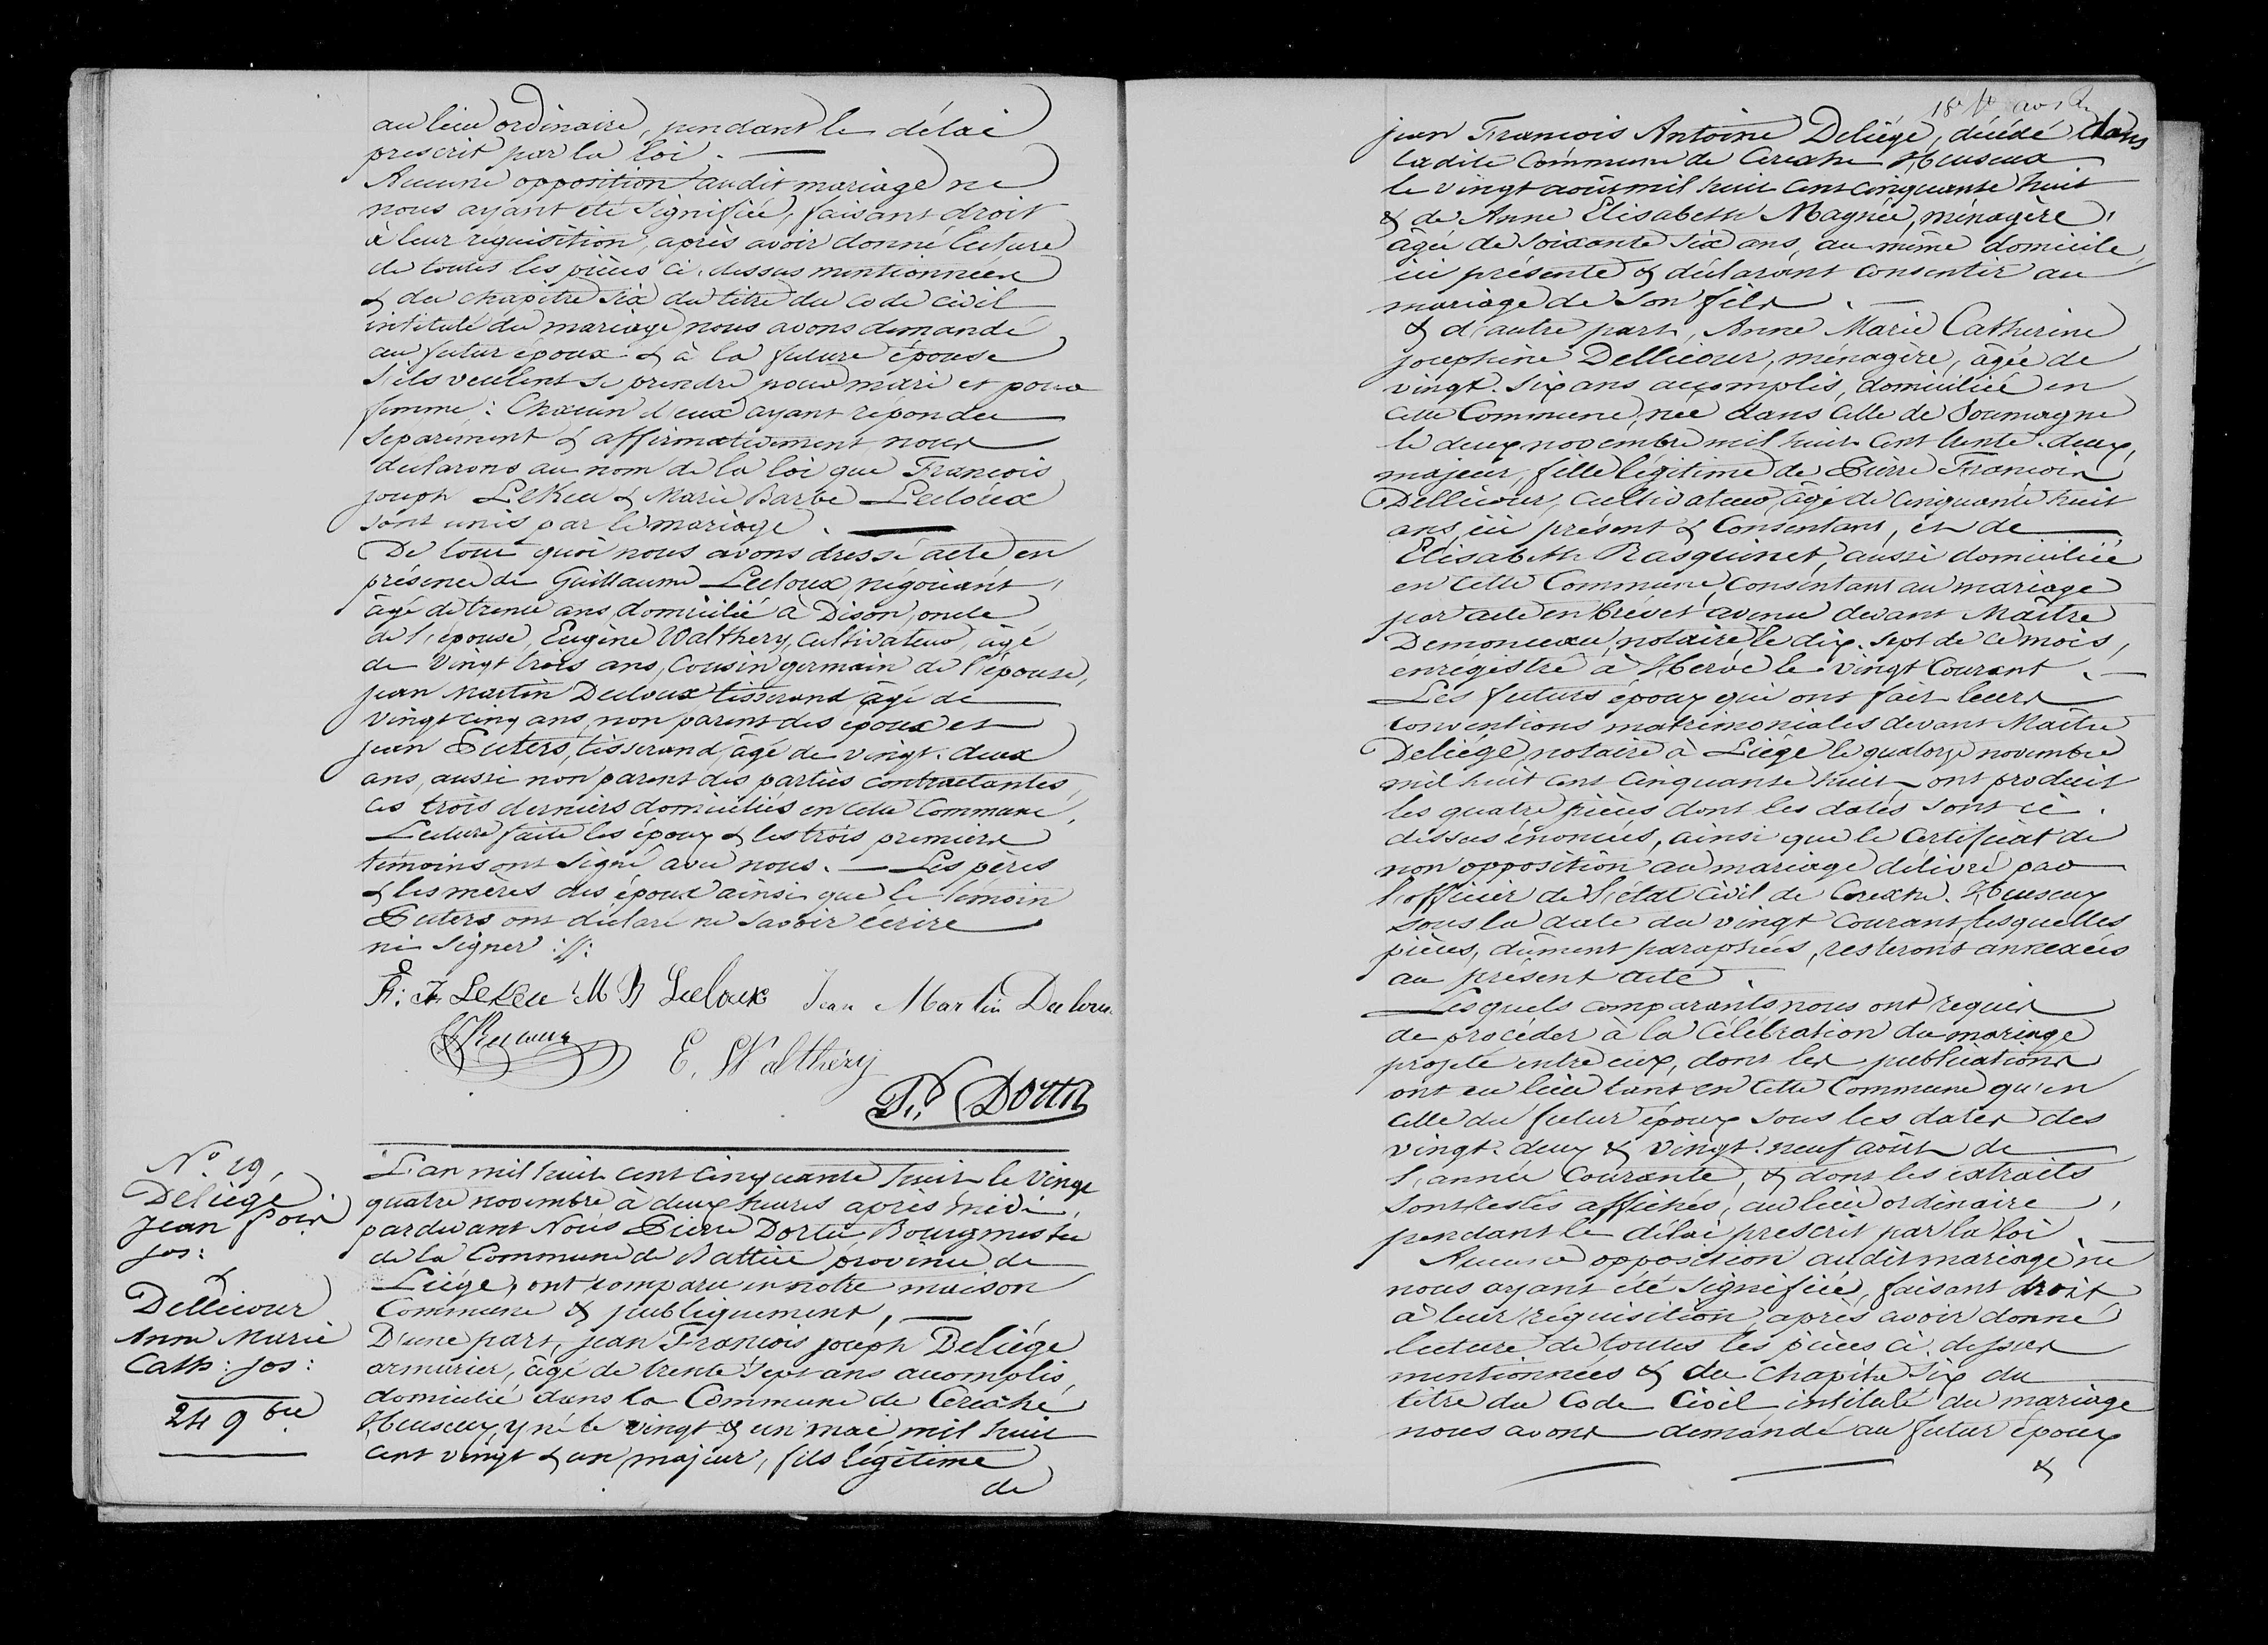 au lieu ordinaire, pendant le délai
prescrit par la loi. —
Aucune opposition audit mariage ne
nous ayant été signifiée, faisant droit
à leur réquisition, après avoir donné lecture
de toutes les pièces ci-dessus mentionnées
& du chapitre six du titre du code civil
intitulé du mariage nous avons demandé
au futur époux & à la future épouse
s'ils veulent se prendre pour mari et pour
femme : Chacun d'eux ayant répondu
séparément & affirmativement, nous
déclarons au nom de la loi que François
joseph LeKeu & Marie Barbe Lecloux
sont unis par le mariage. —
De tout quoi nous avons dressé acte en
présence de Guillaume Lecloux, négociant,
âgé de trente ans, domicilié à Dison, oncle
de l'épouse, Eugène Walthery, cultivateur, âgé
de vingt trois ans, Cousin germain de l'épouse,
jean Martin Decloux tisserand âgé de
vingt cinq ans, non parent des époux et
jean Peters, tisserand, âgé de vingt-deux
ans, aussi non parent des parties contractantes,
ces trois derniers domiciliés en cette Commune,
Lecture faite les époux & les trois premiers
témoins ont signé avec nous. — Les pères
& les mères des époux ainsi que le témoin
Peters ont déclaré ne savoir écrire
ni signer ://:
F: J. LeKeu M B Lecloux Jean Martin
E. Walthery
P. Dortu
N° 29,
Deliége
Jean f.ois
jos:
&
Dellicour
Anne Marie
Cath: jos:
24 9bre
L'an mil huit cent cinquante huit le vingt
quatre novembre à deux heures après midi,
pardevant Nous Pierre Dortu, Bourgmestre
de la Commune de Battice province de
Liége, ont comparu en notre maison
Commune & publiquement, —
D'une part, jean François joseph Deliége
armurier, âgé de trente sept ans accomplis,
domicilié dans la Commune de Cerexhe
Heuseux, y né le vingt & un mai mil huit
cent vingt & un, majeur, fils légitime
de
jean François Antoine Deliége, décédé dans
ladite Commune de Cerexhe Heuseux
le vingt août mil huit cent cinquante huit
& de Anne Elisabeth Magnée, ménagère,
âgée de soixante six ans, au même domicile,
ici présente & déclarant consentir au
mariage de son fils. —
& d'autre part, Anne Marie Catherine
josephine Dellicour, ménagère, âgée de
vingt-six ans accomplis, domiciliée en
cette Commune, née dans celle de Soumagne
le deux novembre mil huit cent trente-deux,
majeur, fille légitime de Pierre François
Dellicour, cultivateur, âgé de cinquante huit
ans, ici présent & Consentant, et de
Elisabeth Rasquinet, aussi domiciliée
en cette Commune, consentant au mariage
par acte en brevet avenu devant Maître
Demonceau, notaire le dix-sept de ce mois,
enregistré à Herve le vingt Courant. —
Les futurs époux qui ont fait leurs
conventions matrimoniales devant Maître
Deliége, notaire à Liége le quatorze novembre
mil huit cent cinquante huit, ont produit
les quatre pièces dont les dates sont ci-
dessus énoncées, ainsi que le Certificat de
non opposition au mariage délivré par
l'officier de l'état civil de Cerexhe-Heuseux
sous la date du vingt Courant, lesquelles
pièces, dûment paraphées, resteront annexées
au présent acte.
Lesquels comparants nous ont requis
de procéder à la célébration du mariage
projeté entre eux, dont les publications
ont eu lieu tant en cette Commune qu'en
celle du futur époux sous les dates des
vingt-deux & vingt-neuf août de
l'année Courante, & dont les extraits
sont restés affichés, au lieu ordinaire,
pendant le délai prescrit par la loi. —
Aucune opposition audit mariage ne
nous ayant été signifiée, faisant droit
à leur réquisition, après avoir donné
lecture de toutes les pièces ci-dessus
mentionnées & du chapitre Six du
titre du Code Civil intitulé du mariage
nous avons demandé au futur époux
&